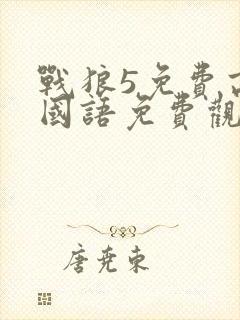 戰狼5免費高
國語免費觀
唐堯東